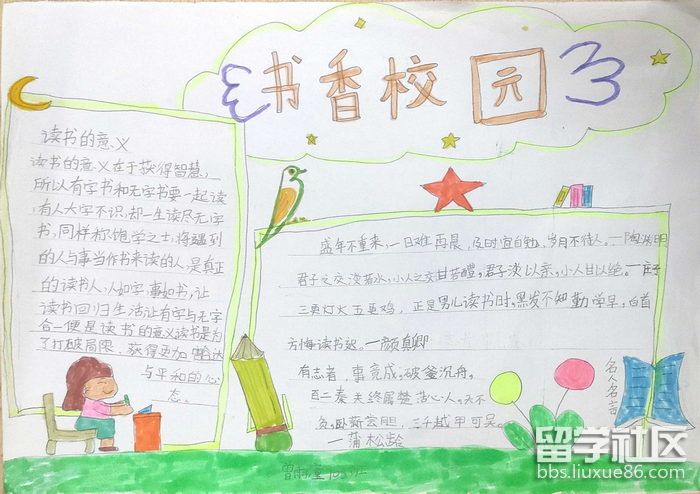 书香校园
读书的意义
读书的意义在于获得智慧,
所以有字书和无字书要一起读
有人大字不识,却一生读尽无字
书,同样称饱学之士,将遇到
的人与事当作书来读的人,是真正
的读书人,人如字,事如书,让
读书回归生活让有字与无字
合一便是读书的意义读书是为
了打破局限,获得更加豁达
与平和的心
态。
盛年不重来,一日难再晨,及时宜自勉,岁月不待人。一陶渊明
君子之交淡若水,小人之交甘若醴,君子淡以亲,小人甘以绝。一庄子
三更灯火五更鸡,正是男儿读书时,黑发不知勤学早,白首
方悔读书迟。一颜真卿
有志者,事竟成,破釜沉舟,
百二秦关终属楚苦心人,天不
负,卧薪尝胆,三千越甲可吴。
一蒲松龄
名人名言
留学社区
bbs.liuxue86.com